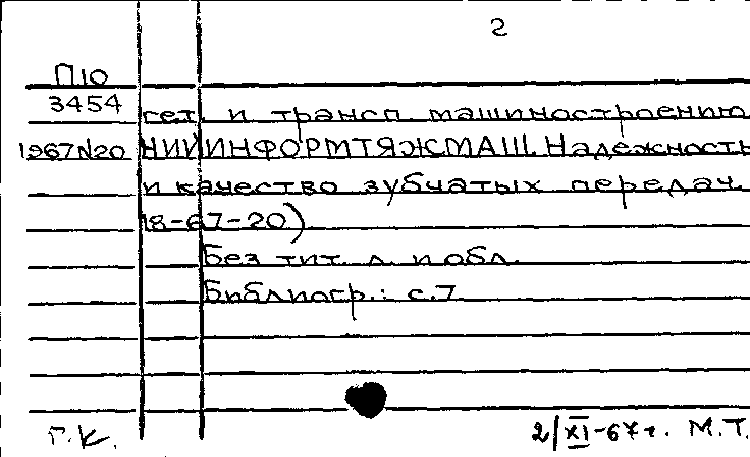 2
П10
3454 гет. и трансп. машиностроению
1967N20 НИИИНФОРМТЯЖМАШ. Надежность
и качество зубчатых передач.
18-67-20)
Без тит. л. и обл.
Библиогр.: с.7
Г.К. 2/XI-67г. М.Т.